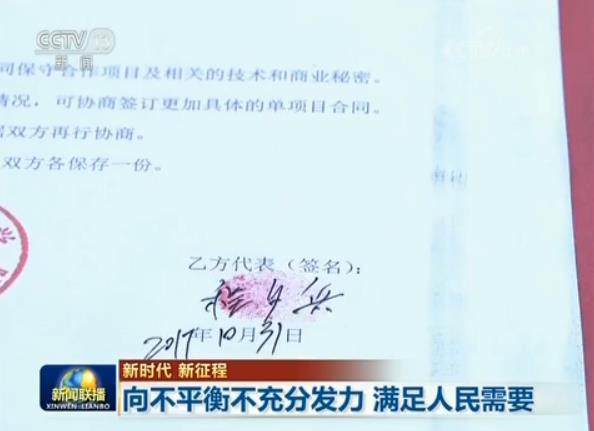 CCTV 13
新闻
司保守合作项目及相关的技术和商业秘密。
情况，可协商签订更加具体的单项目合同。
双方再行协商。
双方各保存一份。
乙方代表（签名）：
2017年10月31日
新时代 新征程
新闻联播
XINWEN LIANBO
向不平衡不充分发力 满足人民需要